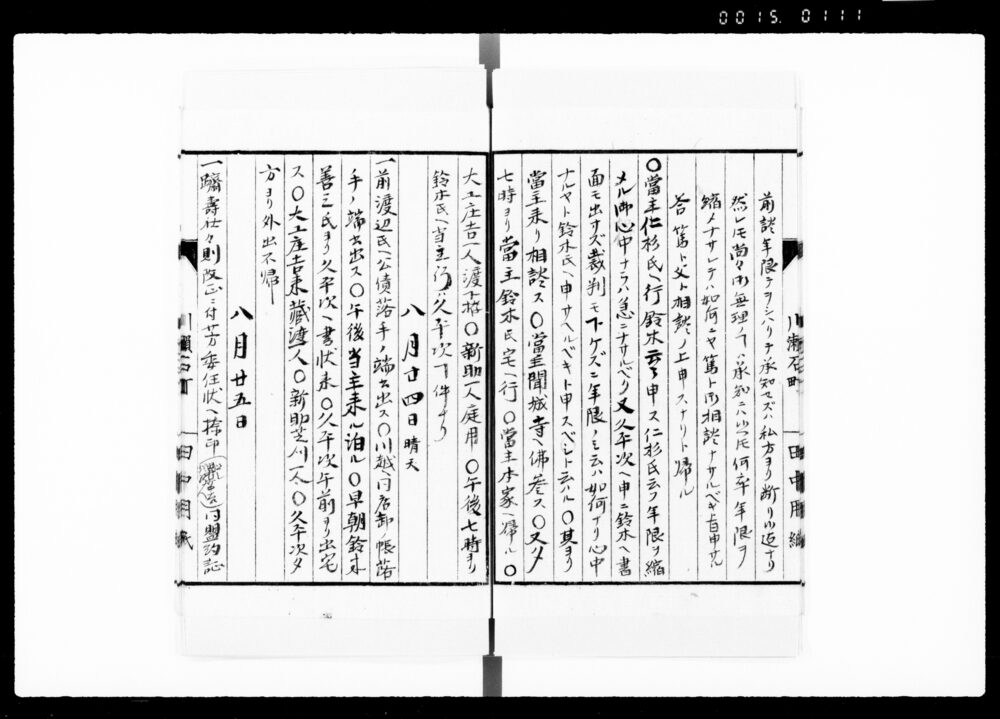 0015.0111
前談年限テヲシベリテ承知セズハ私方ヨリ断リ申迄ナリ
然レモ尚々御無理ノ丁ハ承知ニハ候ヘ共何卒年限ヲ
縮メナサレテハ如何ニヤ篤ト御相談ナサルベキ旨申サル
答 篤ト父ト相談ノ上申スナリト帰ル
〇當主仁杉氏ヘ行鈴木云々申ス仁杉氏云フ年限ヲ縮
メル御心中ナラハ急ニナサルベク又久平次ヘ申ニ鈴木ヘ書
面モ出サズ裁判モ下ケズニ年限ノミ云ハ如何ナリ心中
ナルヤト鈴木氏ヘ申サヘルベキト申スベシト云ハル〇其ヨリ
當主来リ相談ス〇當主聞城寺ヘ佛参ス〇又夕
七時ヨリ當主鈴木氏宅ヘ行〇當主本家ヘ帰ル〇
川瀬石町
田中用紙
大工庄吉一人渡下拵〇新助一人庭用〇午後七時ヨリ
鈴木氏ヘ当主行ハ久平次下件ナリ
八月廿四日 晴天
一前渡辺氏ヘ公債落手ノ端書出ス〇川越ヘ同店卸ノ帳落
手ノ端書出ス〇午後当主来ル泊ル〇早朝鈴木
善三氏ヨリ久平次ヘ書状来〇久平次午前ヨリ出宅
ス〇大工庄吉来蔵渡一人〇新助芝刈一人〇久平次夕
方ヨリ外出不帰
八月廿五日
一躋壽社々則改正ニ付芳委任状ヘ捺印
同盟約証
川瀬石町
田中用紙